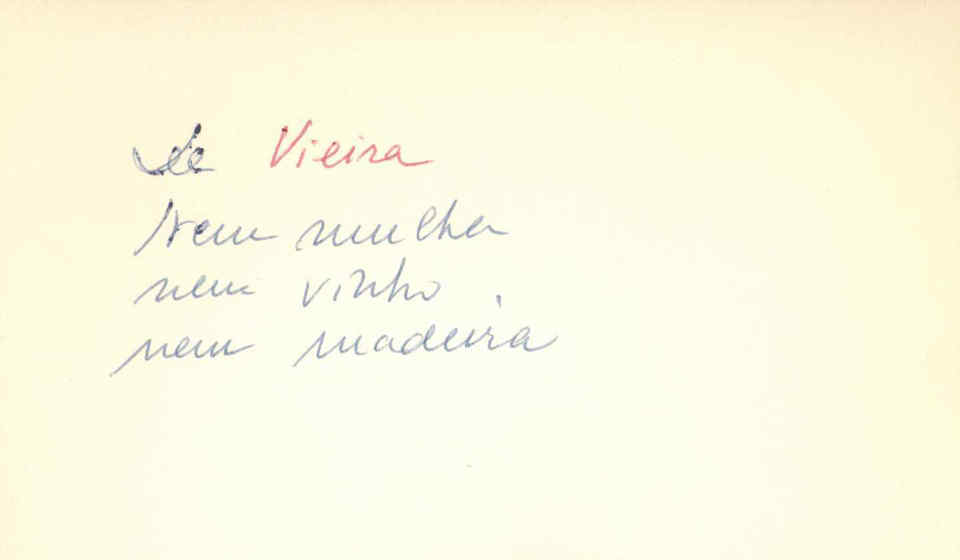 De Vieira
Nem mulher
nem vinho
nem madeira